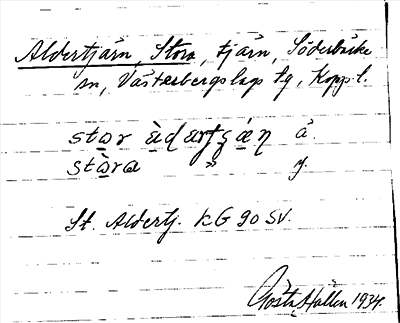 Aldertjärn, Stora, tjärn, Söderbärke
sn, Västerbergslags tg, Koppl.
å.
stàra " y.
St. Aldertj. KG 90 SV.
Gösta Hallén 1934.